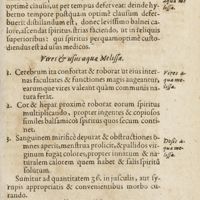 optimũ clausiũ, ut per tempus deferveat: dende hy-
berno tempore postquam optimè clausum defer-
buerit: distillandum est, donec levissimo balnei ca-
lore, ascendāt spiritus, strias faciendo, ut in reliquis
superioribus: qui spiritus perquam optimè custo-
diendus est ad usus medicos.
Vires & usus aquæ Melissæ.
1. Cerebrum ita confortat & roborat ut ejus inter-
nas facultates & functiones magis augeantur,
earumque vires valeant quàm communis na-
tura ferat.
2. Cor & hepar proximè roborat eorum spiritus
multiplicando, propter ingentes & copiosos
similes balsamicos spiritus quos secum conti-
net.
3. Sanguinem mirificè depurat & obstructiones o-
mnes aperit, menstrua prolicit, & pallidos vir-
ginum fugat colores, propter innatum & na-
turalem calorem quem habet & salis spiritũ
solutum.
Sumitur ad quantitatem ʒ6. in jusculis, aut sy-
rupis appropriatis & convenientibus morbo cu-
rando.
aqua me-
lissæ.
Vires a-
quæ me-
lissæ.
Dosis a-
quæ me-
lissæ.